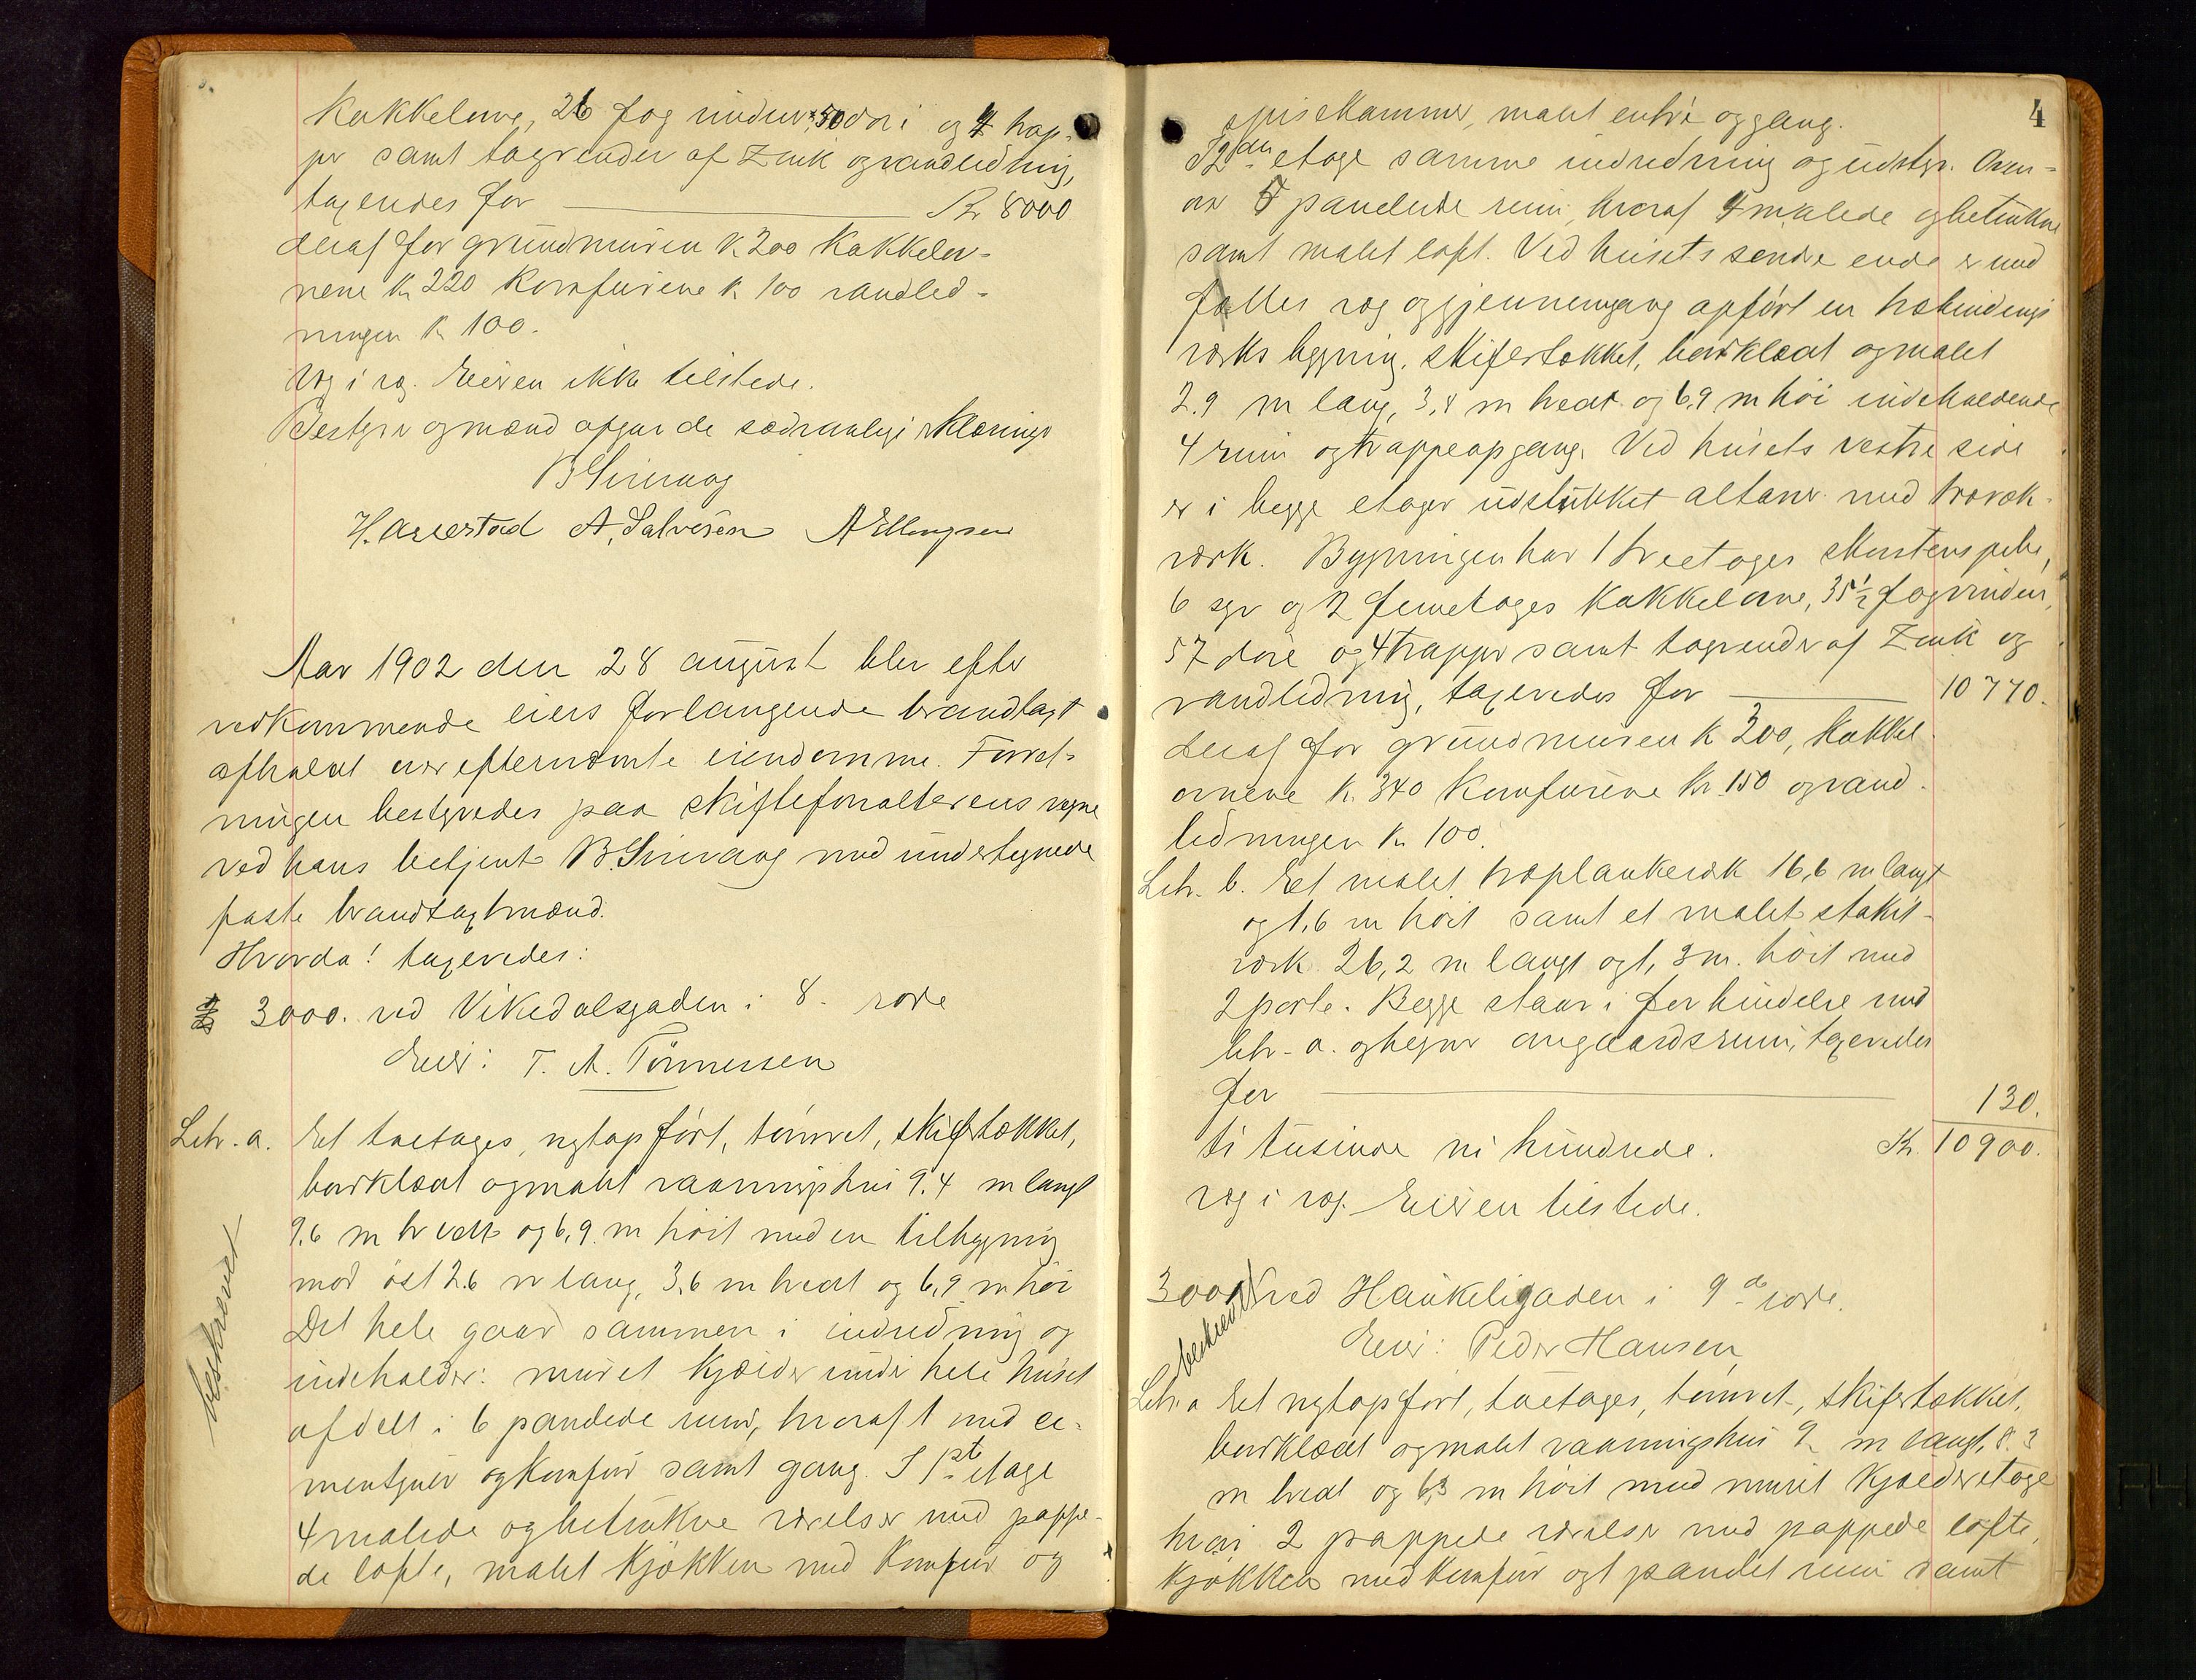 Kakkelovne, 26 fag vinduer, 50 döri og 4 trap-
per samt tagrender af Zink og vandledning,
taxeredes for Kr 8000
deraf for grundmuren k. 200 Kakkelov-
nene k 220 Komfurene k 100 vandled-
ningen k 100.
Væg i væg. Eieren ikke tilstede.
Bestyrer og mænd afgav de sædvanlige erklæringer
B Sirevaag
H. Aarrestad A. Salvesen A Ellingsen
Aar 1902 den 28 august blev efter
vedkommende eiers forlangende brandtaxt
afholdt over efternævnte eiendomme. Forret-
ningen bestyredes paa skifteforvalterens vegne
ved hans betjent B. Sirevaag med undertegnede
faste brandtaxtmænd.
Hvorda! taxeredes:
3000. ved Vikedalsgaden i 8. rode
Eier: T. A. Tönnessen
Litr. a. Et toetages, nytopfört, tömret, skifertækket,
bordklædt og malt vaaningshus 9.4 m langt
9.6 m bredt og 6,9 m höit med en tilbygning
mod öst 2.6 m lang, 3.6 m bredt og 6,9 m höi
Det hele gaar sammen i indredning og
indeholder: muret Kjælder under hele huset
afdelt i 6 panelede rum, hvoraf 1 med ce-
mentgulv og Komfur samt gang. I 1ste etage
4 malede og betrukne værelser med pappe-
de lofte, malet Kjökken med Komfur og
beskrevet
4
spisekammer, malet entré og gang.
I 2den etage samme indredning og udstyr. Oven-
over 5 panelede rum, hvoraf 4 malede og betrukne
samt malet loft. Ved husets søndre ende er med
fælles væg og gjennemgang opført en træbindings
værks bygning, skifertækket, bordklædt og malet
2.9 m lang, 3,4 m bredt og 6,9 m höi indeholdende
4 rum og trappeopgang. Ved husets vestre side
er i begge etager udstukket altaner med træræk-
værk. Bygningen har 1 treetages skorstenspibe,
6 sgr og 2 femetages Kakkelovne, 35 1/2 fag vinduer,
57 döre og 4 trapper samt tagrender af Zink og
vandledning, taxeredes for 10770.
deraf for grundmuren k 300, Kakkel
ovnene k. 340 Komfurene kr. 150 og vand-
ledningen k 100.
Litr. b. Et malet træplankeværk 16,6 m langt
og 1,6 m höit samt et malet stakit-
værk 26,2 m langt og 1,3 m. höit med
2 porte. Begge staar i forbindelse med
litr. a. og hegner om gaardsrum, taxeredes
for 130.
ti tusinde ni hundrede. Kr. 10900.
væg i væg. Eieren tilstede.
3001 ved Haukeligaden i 9de rode.
beskrevet
Eier: Peder Hansen
Litr. a Et nytopfört, toetages, tömret, skifertækket,
bordklædt og malt vaaningshus 9 m langt, 8.3
m bredt og 6,3 m höit med muret Kjælderetage
hvori 2 pappede værelser med pappede lofte,
Kjökken med Komfur og 1 panelet rum samt